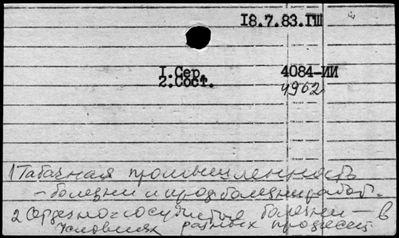 18.7.83.ГШ
1.Сер. 4084-ИИ
2.Сост. 4962
1 Табачная промышленность
- болезни и проф болезни работ.
2 Сердечно=сосудистые болезни - в
условиях разных профессий